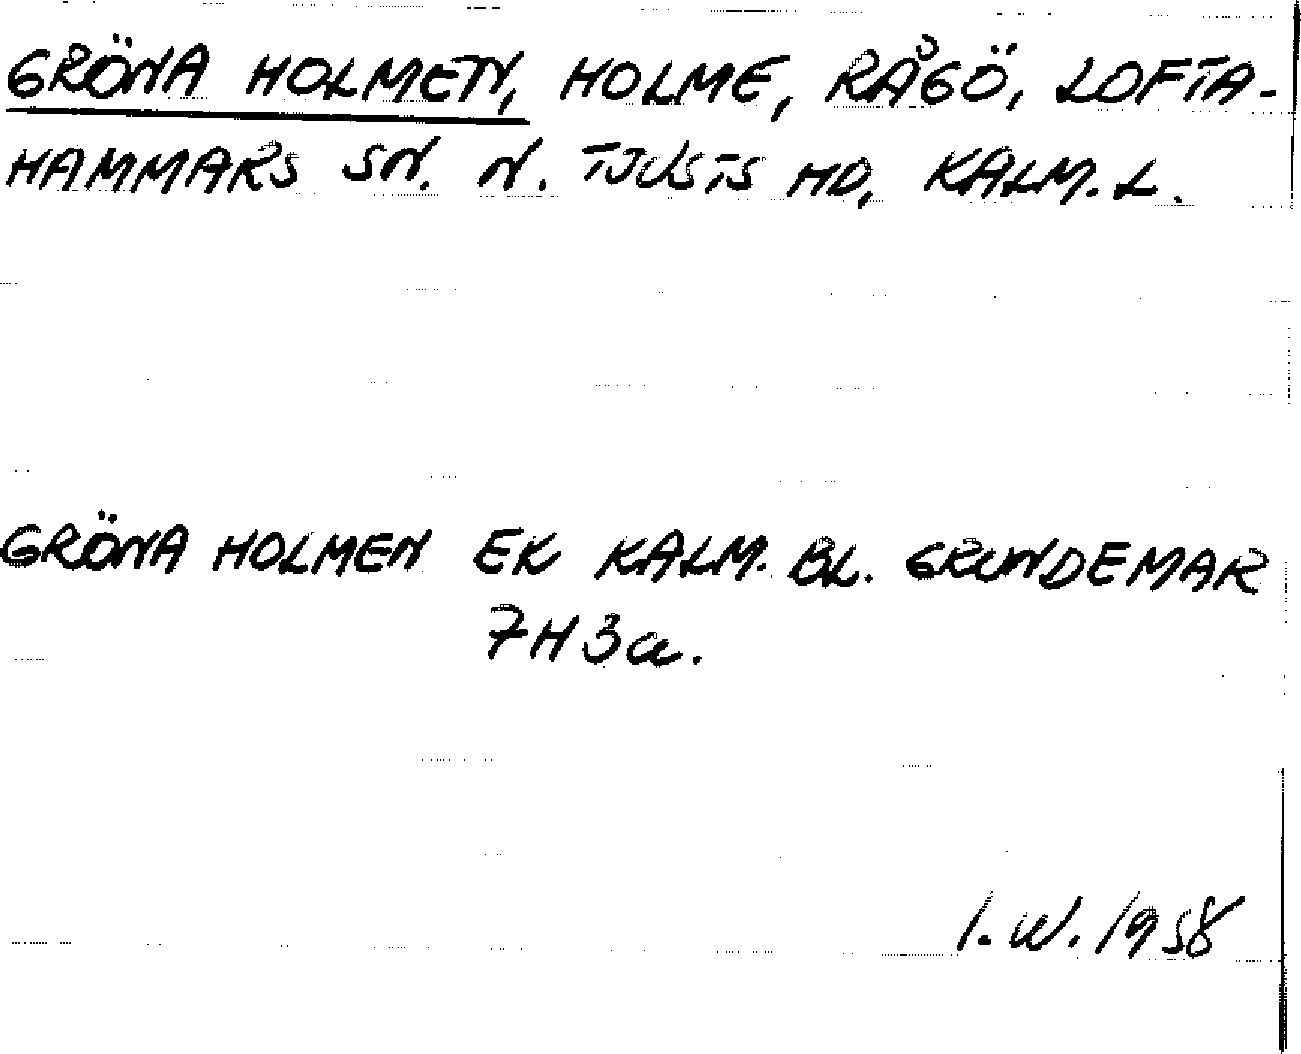 GRÖNA HOLMEN, HOLME, RÅGÖ, LOFTA-
HAMMARS SN. N. TJUSTS HD, KALM. L.
GRÖNA HOLMEN EK KALM. BL. GRUNDEMAR
7H3a.
I.W. 1958